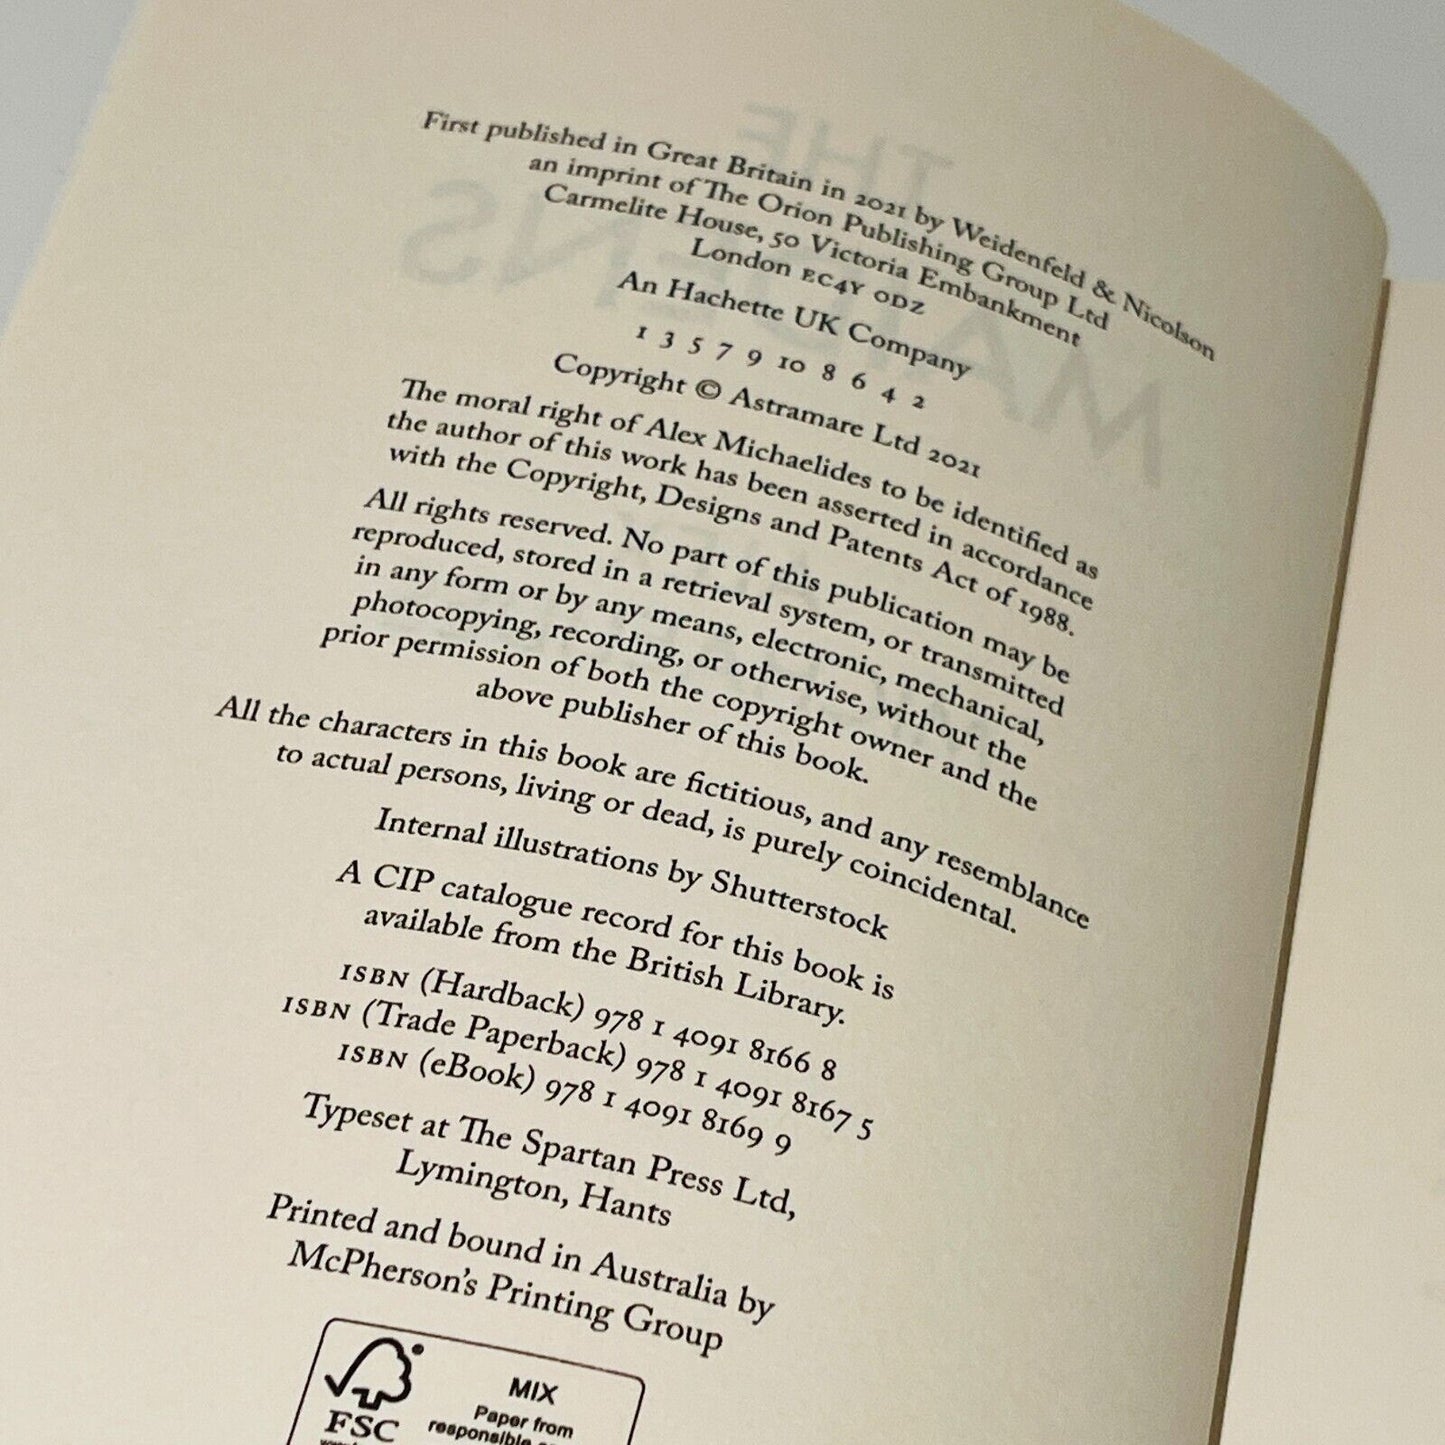 First published in Great Britain in 2021 by Weidenfeld & Nicolson
an imprint of The Orion Publishing Group Ltd
Carmelite House, 50 Victoria Embankment
London EC4Y 0DZ
An Hachette UK Company
1 3 5 7 9 10 8 6 4 2
Copyright © Astramare Ltd 2021
The moral right of Alex Michaelides to be identified as
the author of this work has been asserted in accordance
with the Copyright, Designs and Patents Act of 1988.
All rights reserved. No part of this publication may be
reproduced, stored in a retrieval system, or transmitted
in any form or by any means, electronic, mechanical,
photocopying, recording, or otherwise, without the
prior permission of both the copyright owner and the
above publisher of this book.
All the characters in this book are fictitious, and any resemblance
to actual persons, living or dead, is purely coincidental.
Internal illustrations by Shutterstock
A CIP catalogue record for this book is
available from the British Library.
ISBN (Hardback) 978 1 4091 8166 8
ISBN (Trade Paperback) 978 1 4091 8167 5
ISBN (eBook) 978 1 4091 8169 9
Typeset at The Spartan Press Ltd,
Lymington, Hants
Printed and bound in Australia by
McPherson's Printing Group
MIX
Paper from
responsible
FSC